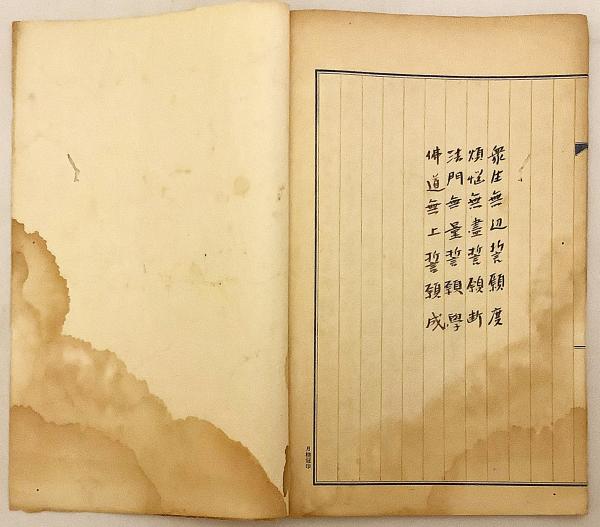 衆生無辺誓願度
煩悩無盡誓願断
法門無量誓願學
佛道無上誓願成